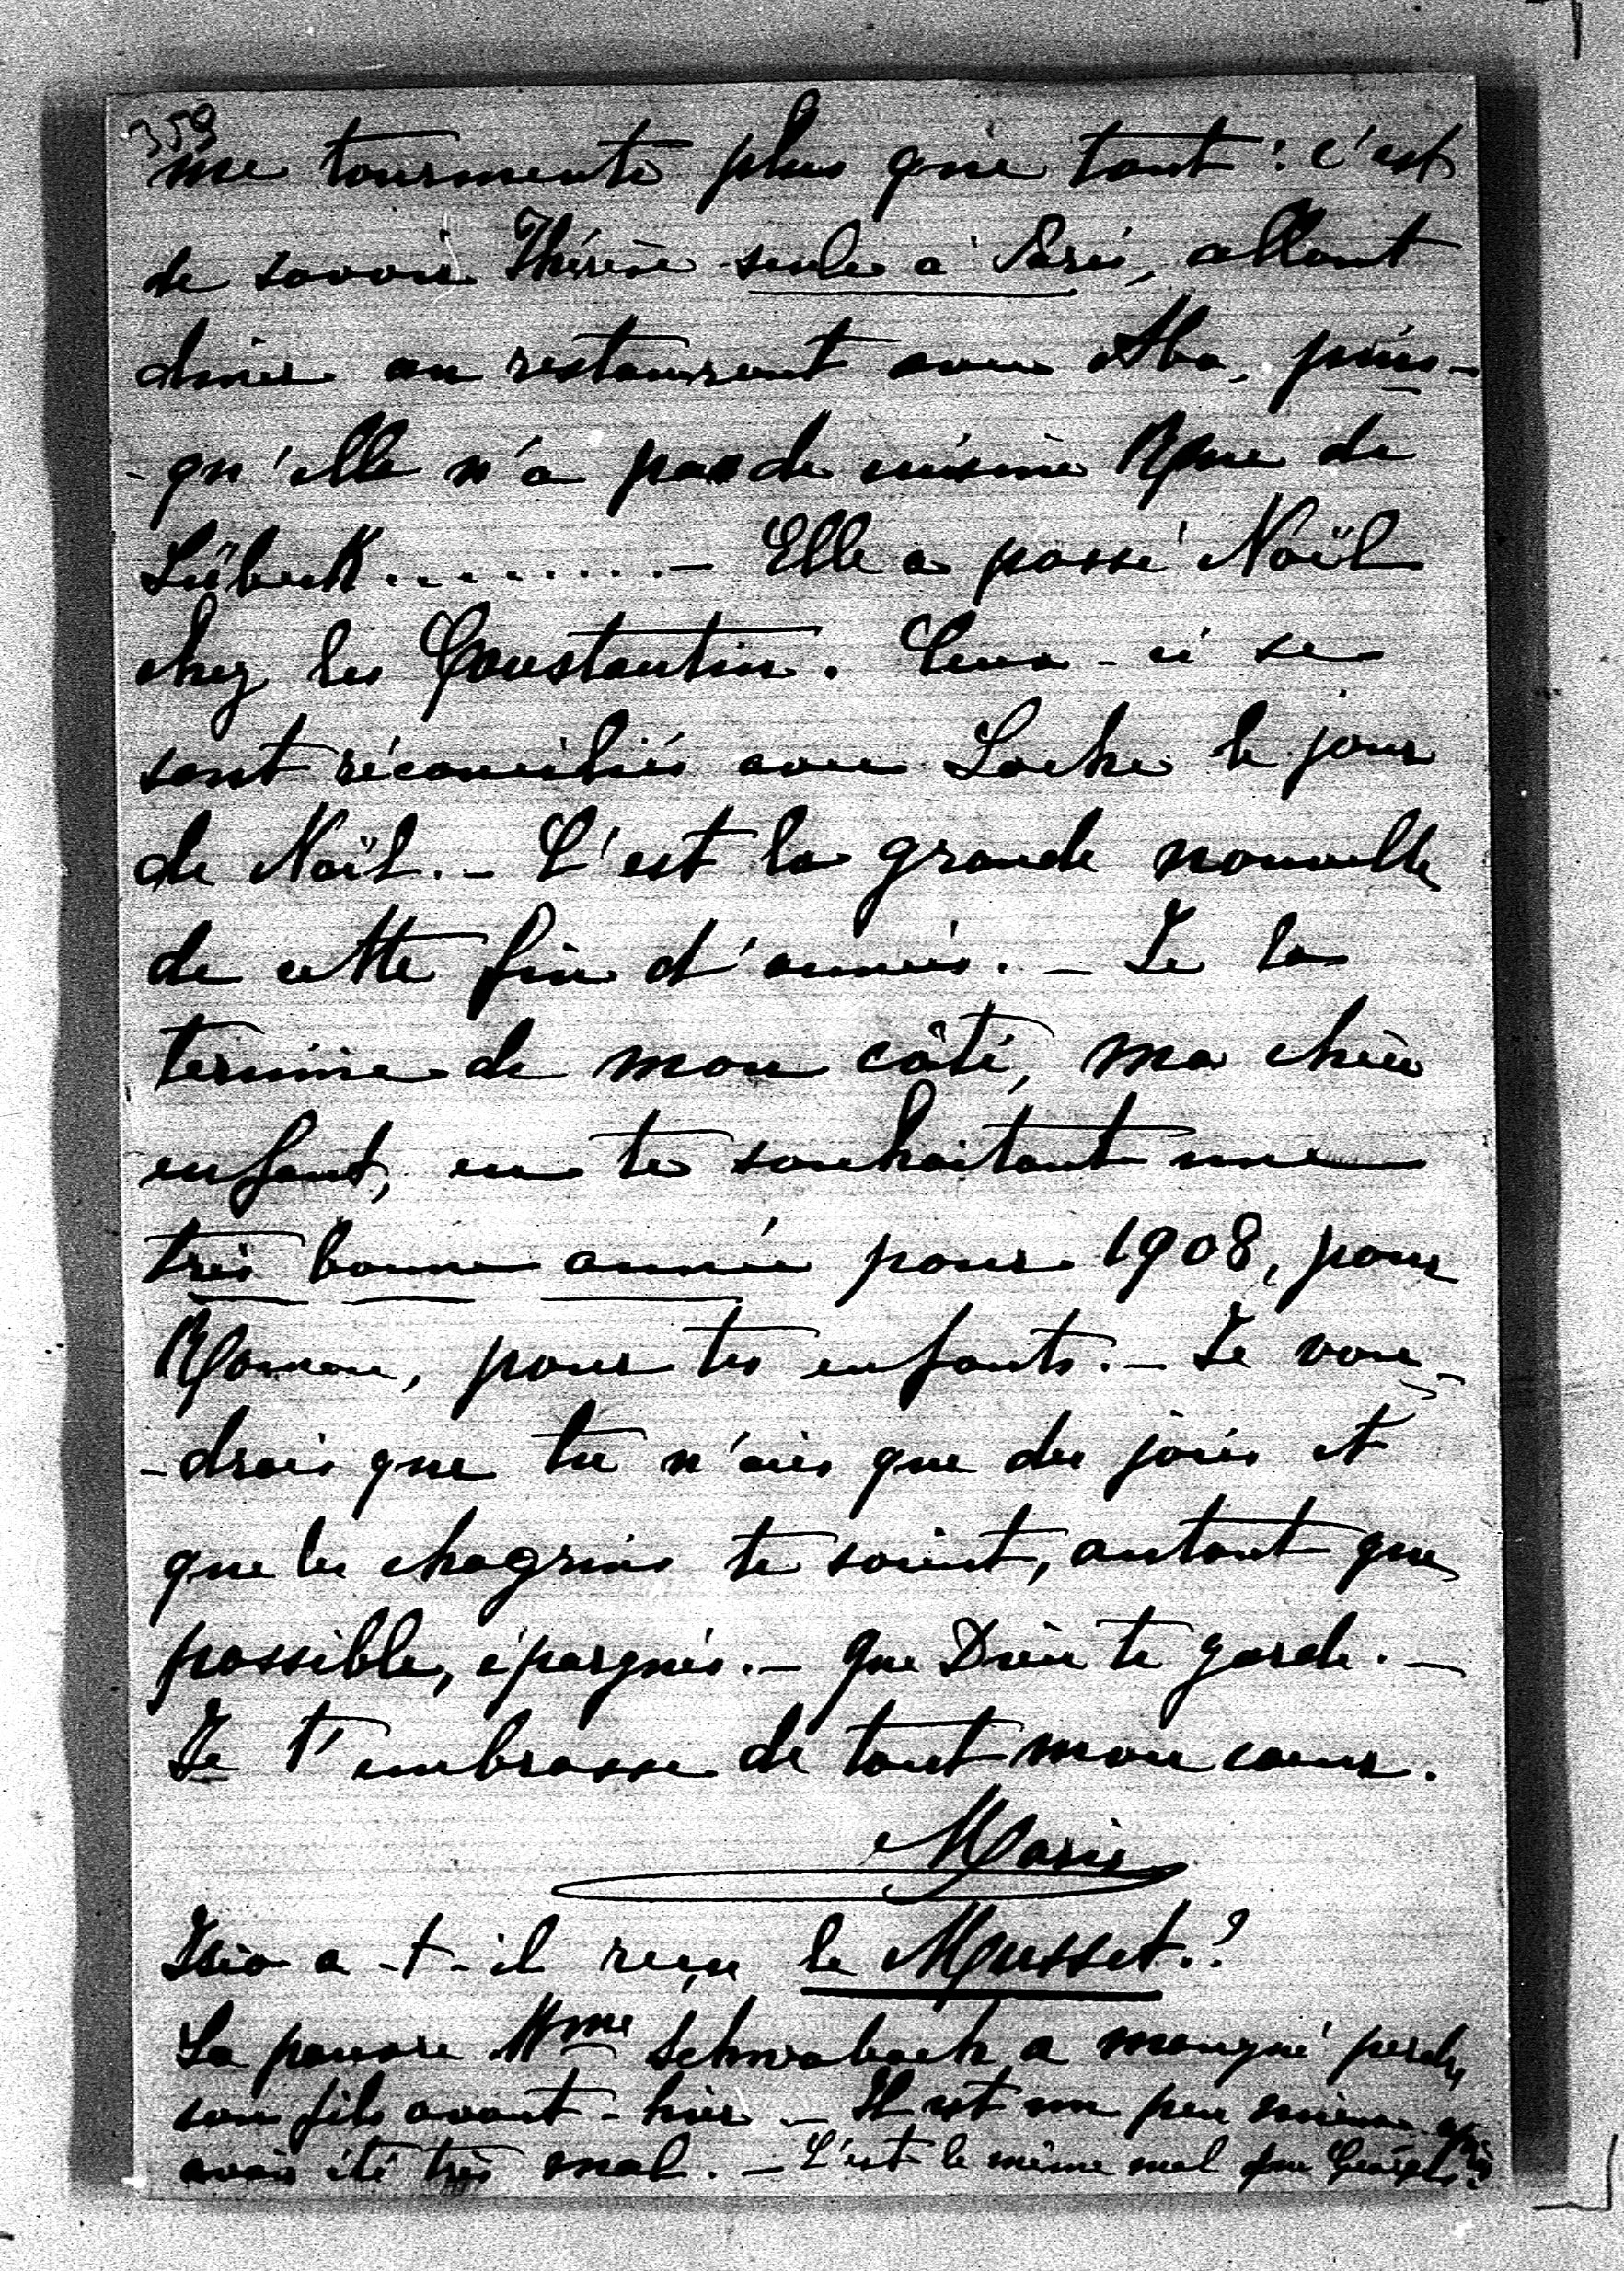 359
me tourmente plus que tout : c'est
de savoir Thérèse seule à Paris, allant
diner au restaurant avec Aba, puis-
- qu'elle n'a pas de cuisine Rue de
Lübeck.........- Elle a passé Noël
chez les Constantin. Ceux-ci se
sont réconciliés avec Sacha le jour
de Noël. - C'est la grande nouvelle
de cette fin d'année. - Je la
termine de mon côté, ma chère
enfant, en te souhaitant une
très bonne année pour 1908, pour
Maman, pour tes enfants. - Je vou-
- drais que tu n'aies que des joies et
que les chagrins te soient, autant que
possible, épargnés. - Que Dieu te garde. -
Je t'embrasse de tout mon coeur.
Marie
a-t-il reçu le Musset.?
La pauvre Mme Schwabach a manqué perdre
son fils avant-hier - Il est un peu mieux après
avoir été très mal. - C'est le même mal que